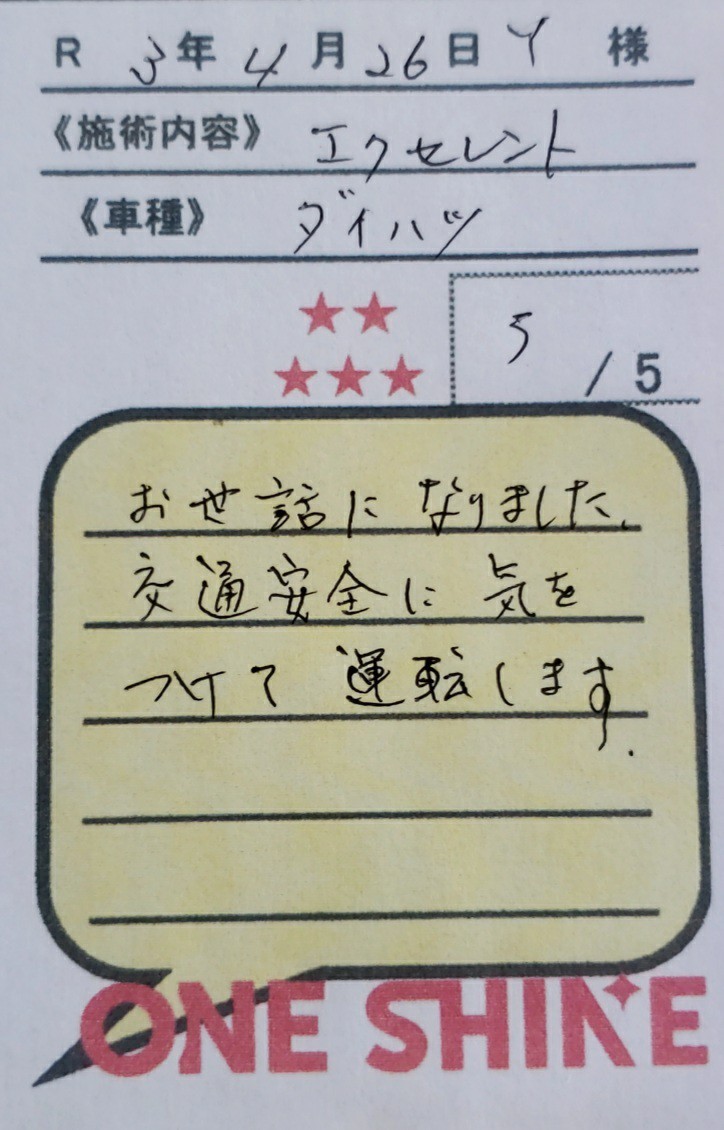 R 3年4月26日 Y 様
《施術内容》 エクセレント
《車種》 ダイハツ
5 / 5
お世話になりました.
交通安全に気を
つけて運転します.
ONE SHINE